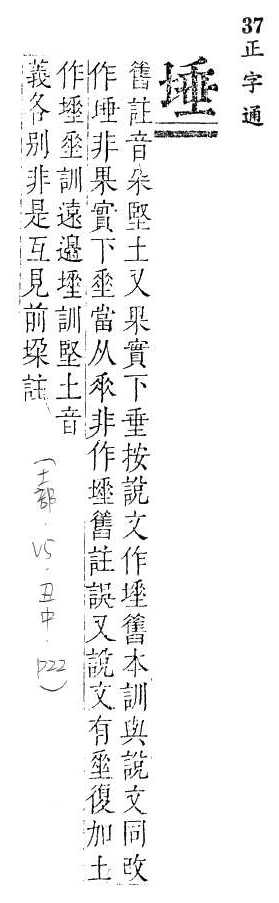 37 正字通
埵
舊註音朵堅土又果實下垂按說文作埵舊本訓與說文同改
作埵非果實下𡍮當从𠂹非作埵舊註誤又說文有𡍮復加土
作埵𡍮訓遠邊埵訓堅土音
義各別非是互見前垜註
(土部.V5.丑中.p22)